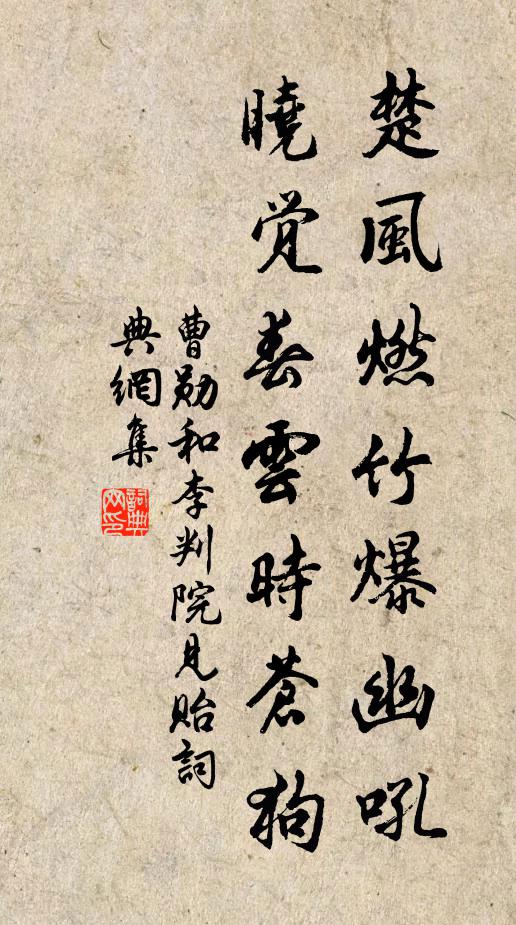 楚風燃竹爆幽吼
曉觉春雲時蒼狗
曹勛和李判院見貽詞
典網集
詞典网印